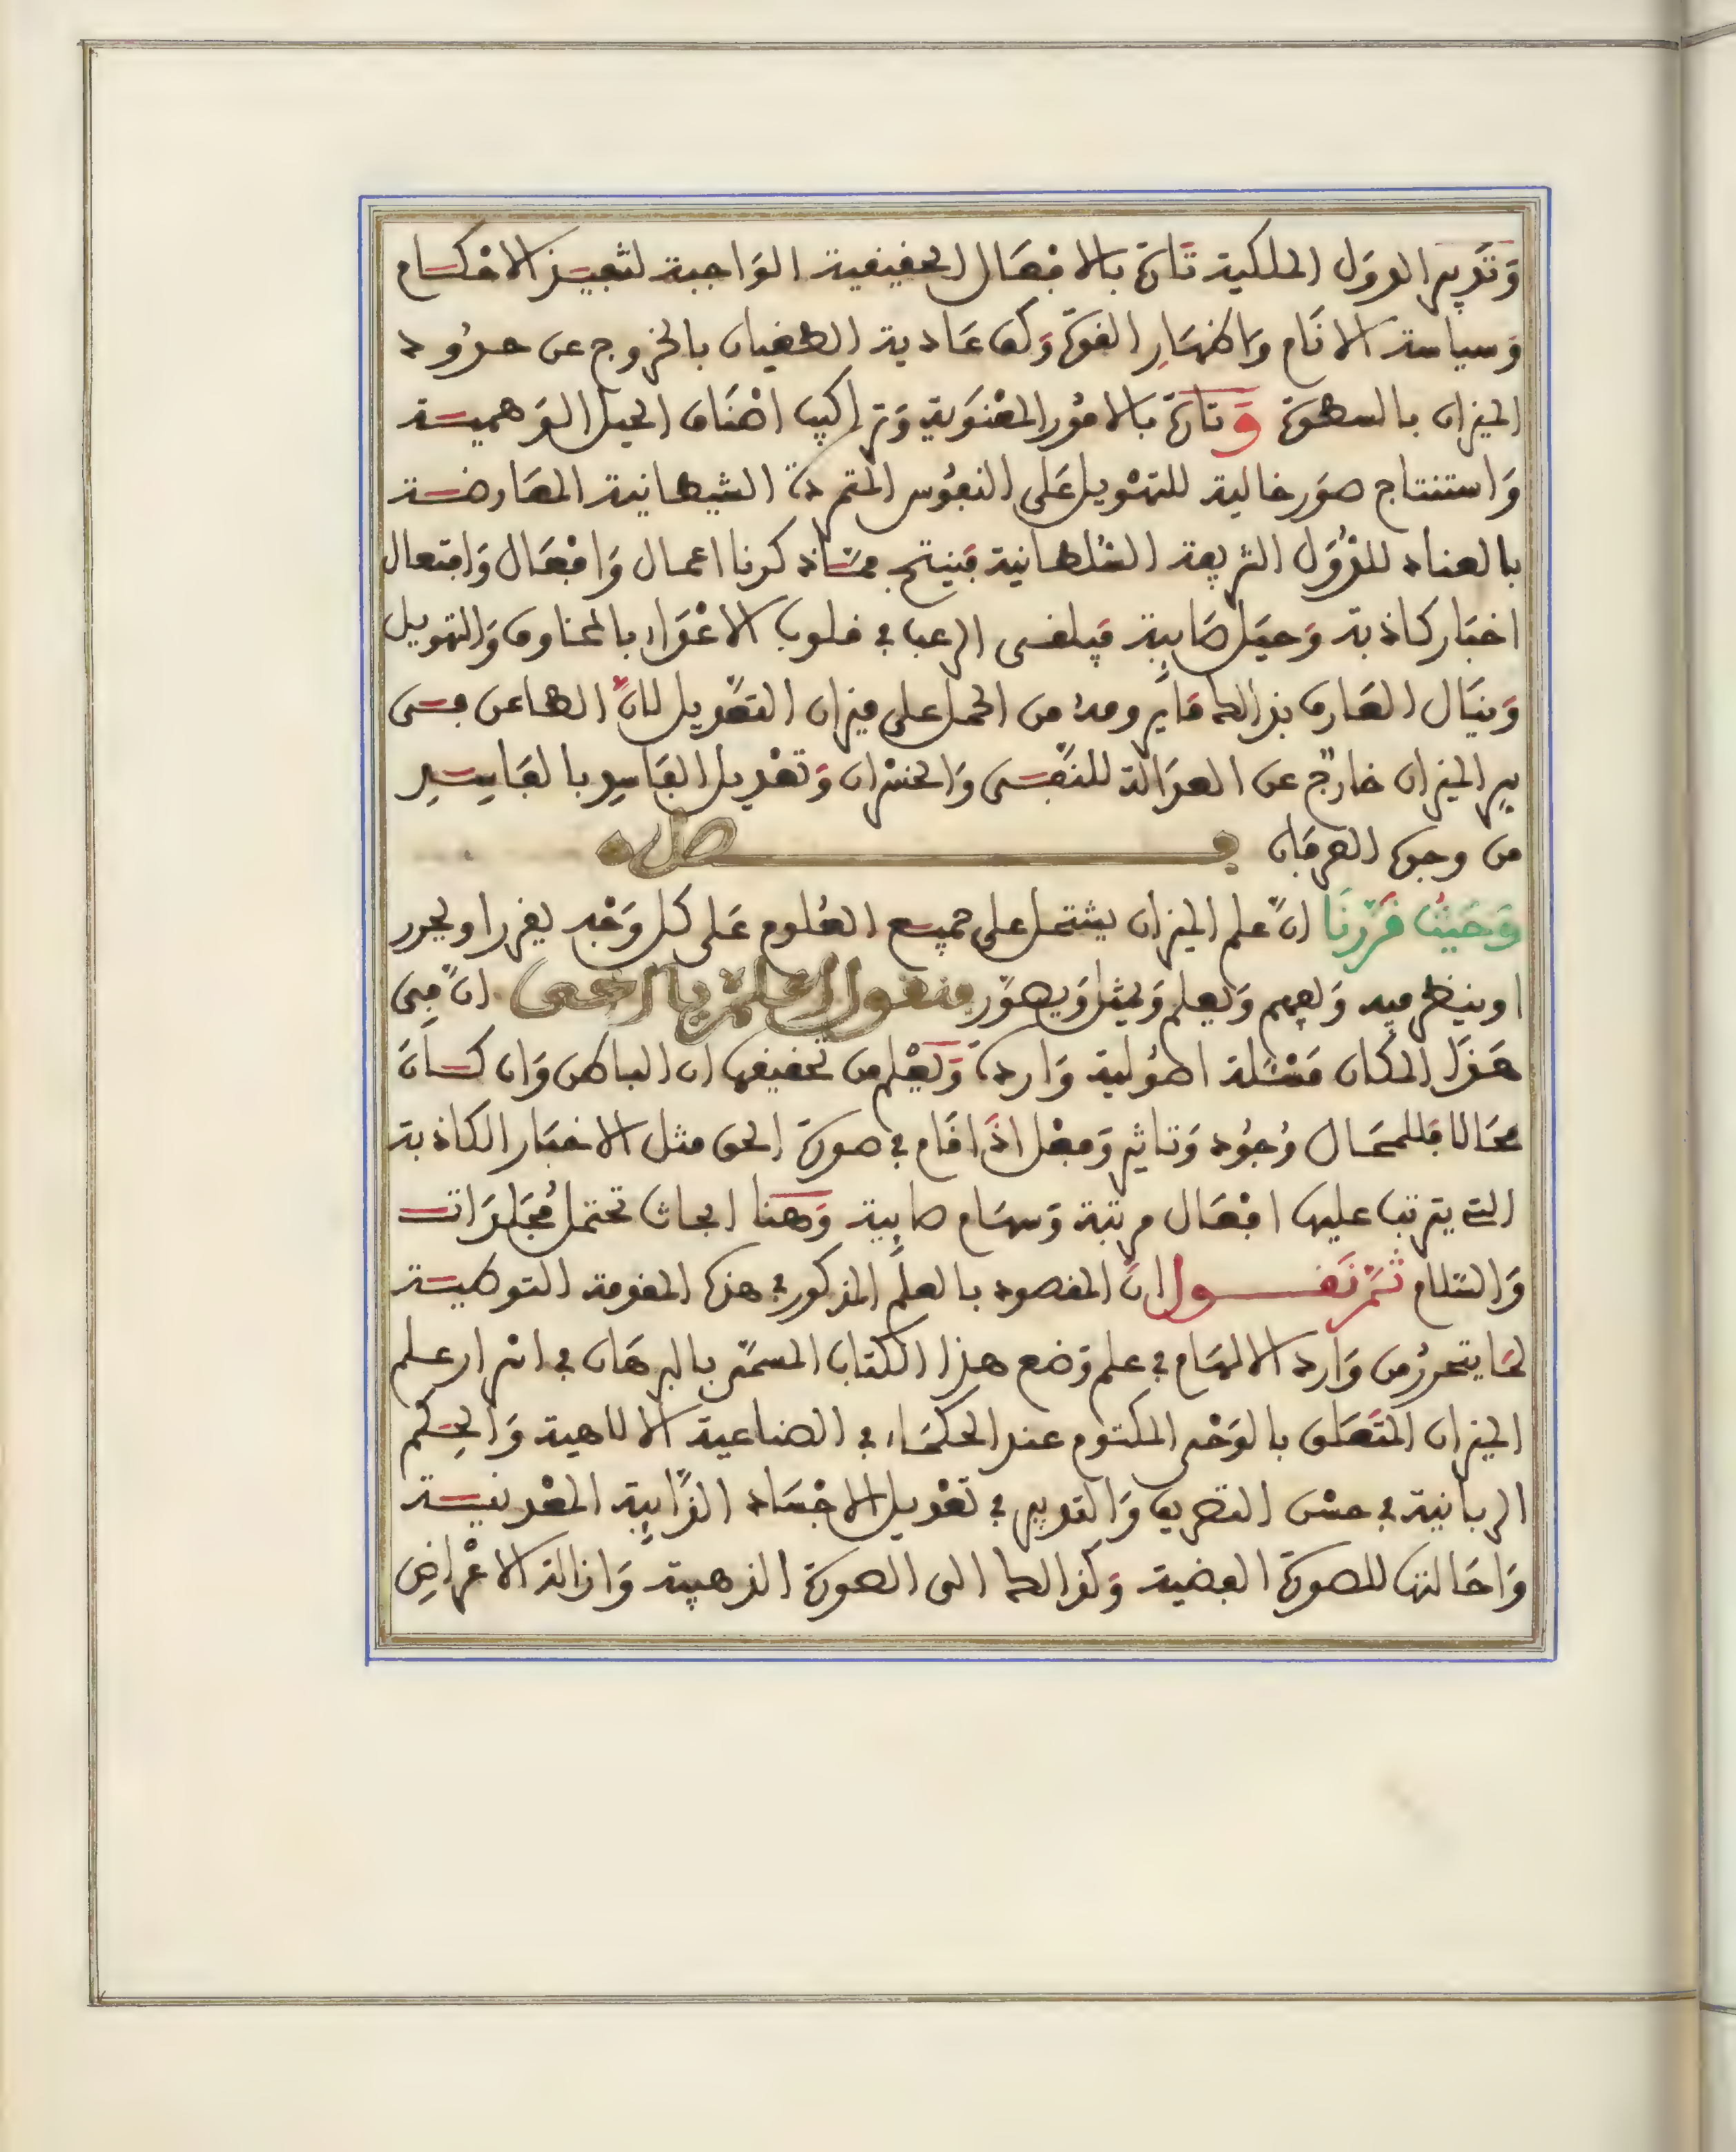 وَتَدبير الدوَل الملكية تَارة بالافعَال الحقيقية الوَاجبة لتنفيـذ الاحْكـام
وَسياسة الانَام وَاظهَار القوة وَكف عَادية الطغيان بالخروج عن حدُود
الميزان بالسطوة وَتارة بالامُور المعْنوَية وَتراكيب اصْنَاف الحيَل الوَهميـة
وَاستنتاج صوَر خالية للتهْويل عَلى النفُوس المتمردة الشيطانية المعَارضـة
بالعناد للدُّوَل الشريفة السُّلطانية فينتج ممّا ذكرنا اعمال وَافعَال وَافتعال
اخبَار كاذبة وَحيَل صَايبة فيلقى الرعب في قلوب الاعْدَاء بالمخاوف وَالتهويل
وَينَال العَارف بذالك مَا يرومه من الحمل على ميزان التعْديل لانّ الطاعن فـى
سر الميزان خارجٌ عن العدَالة للنّقـص وَالخسْران وَتعْديل الفَاسد بالفَاسِـد
من وجوه العرفَان فـــصل
وَحَيْثُ قَرّرنَا انّ علم الميزان يشتمل على جميـع العُلوم عَلى كل وَجْه يقرر او يحرر
او ينظر فيه وَيفهم وَيعلم وَيمثل وَيصوّر فنقول اعلمْ يا اخى انّ فِى
هَذَا المكان مَسْئلة اصُولية وَاردة وَيُعْلم من تحقيقها ان الباطن وَان كـانَ
محَالا فللمحَال وُجُود وَتاثير وَفعْل اذَا قَام في صورة الحق مثل الاخبَار الكاذبة
التى يترتب عليها افعَال مرتبة وَسهَام صايبة وَهنا ابحاث تحتمل مُجَلدَات
وَالسّلام ثمّ نَقـــول انّ المقصود بالعلم المذكور في هذه المقدمة التوطيـة
لمَا يتحررُ من وَارد الالهَام في علم وَضع هذا الكتاب المسمّى بالبرهَان في اسْرار عـلم
الميزان المتعَلق بالوَحْى المكتوم عند الحكمَاء في الصناعية الالاهية وَالحِكم
الربانية في حسْن التصريف وَالتدبير في تعْديل الاجْسَاد الذّايبَة المعْدنيـة
وَاحَالتها للصورة الفضية وَكذالك الى الصورة الذهبية وَازالة الاعْراضِ